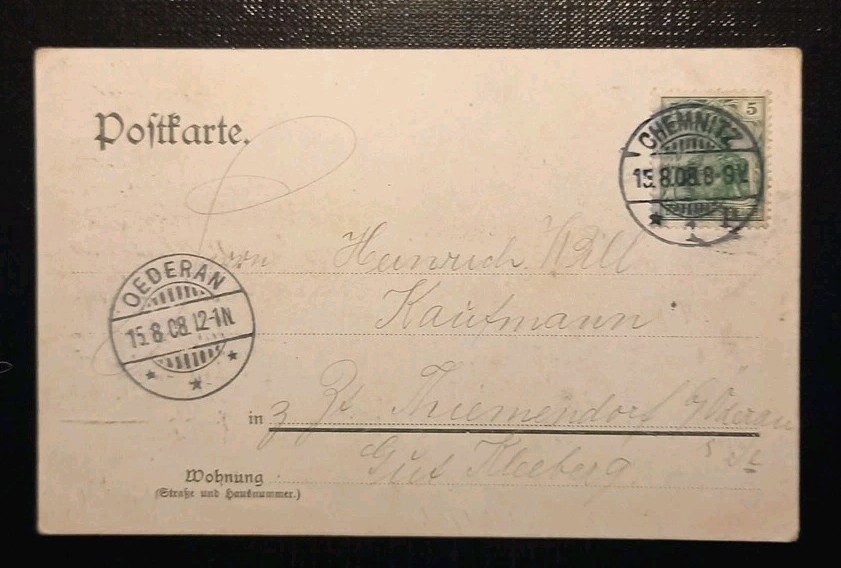 Postkarte.
5
CHEMNITZ
15.8.08.8-9V.
* 1
OEDERAN
15.8.08.12-1N.
* * *
Herrn Heinrich Will
Kaufmann
in z. Zt. Thiemendorf b/Oederan
Gut Kleeberg.
Wohnung
(Straße und Hausnummer.)